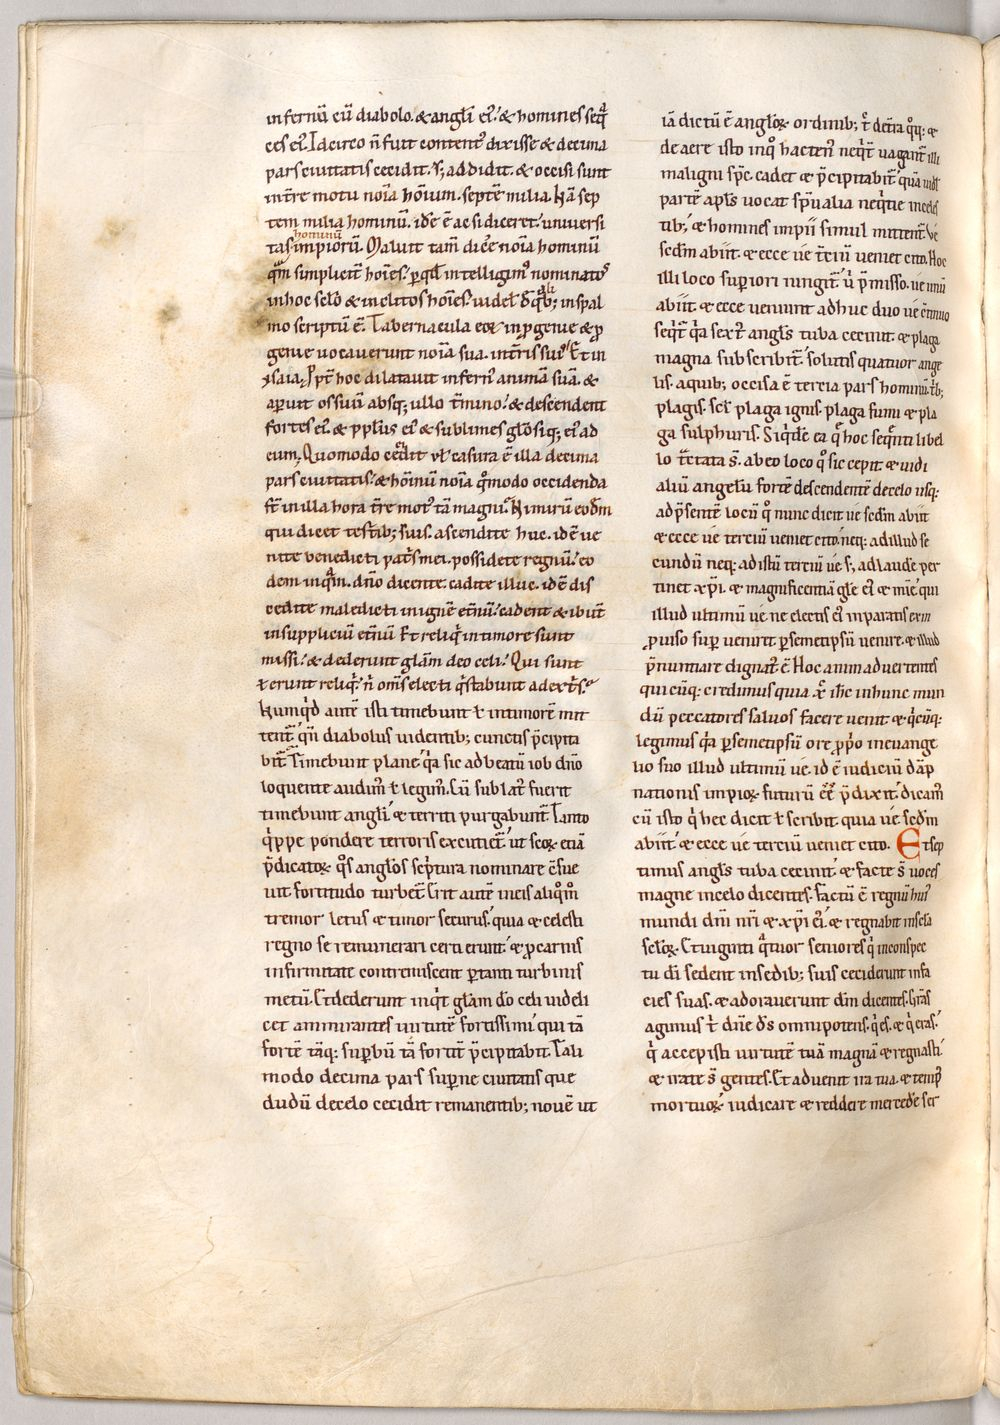 infernū cū diabolo. & angłi eiꝰ. & homines seq̄
ces eiꝰ. Idcirco n̄ fuit contentꝰ dixisse & decuma
pars ciuitatis cecidit. s; addidit. & occisi sunt
in tr̄e motu noīa hōium. septē milia. Nā sep
tem milia hominū. idē ē ac si diceret. uniuersi
hominū
tas impiorū. Maluit tam̄ dicē noīa hominū
qm̄ simplicit̄ hoīes. ꝑ qd̄ intelligimꝰ nominatoˢ
in hoc sclō & inclitos hoīes. uidel; d̄ qb; in psal
mo scriptū ē. Tabernacula eoꝝ in ꝓgenie & ꝓ
genie uocauerunt noīa sua. in tr̄is suis. Et in
ysaia. Propt̄ hoc dilatauit infernꝰ animā suā. &
aꝑuit os suū absq; ullo t̄mino. & descendent
fortes eiꝰ. & pp̄lus eiꝰ & sublimes glōsiq; eiꝰ ad
eum. Quomodo cecidit uł casura ē illa decuma
pars ciuitatis. & hōinū noīa qm̄odo occidenda
st̄ in illa hora tr̄e motꝰ tā magnꝰ. Nimirū eodm̄
qui dicet testib; suis. ascendite huc. idē ue
nite benedicti pat̄s mei. possidete regnū. eo
dem inquā. dn̄o dicente. cadite illuc. idē dis
cedite maledicti in ignē et̄nū. cadent & ibūt
in suppliciū et̄nū Et reliq̄ in timore sunt
missi. & dederunt głam deo celi. Qui sunt
t erunt reliq̄. n̄ om̄s electi q̄ stabunt a dext̄s.
Numqd̄ autē isti timebunt t in timorē mit
tent̄. qn̄ diabolus uidentib; cunctis p̄cipita
bit̄. Timebunt plane. q̄a sic ad beatū iob dn̄o
loquente audimꝰ t legimꝰ. Cū sublatꝰ fuerit
timebunt angłi. & territi purgabunt̄. Tanto
q̄ppe pondere terroris excutient̄. ut scōꝝ etiā
p̄dicatoꝝ. qōs angłos scp̄tura nominare ꝯsue
uit fortitudo turbet̄. Erit autē in eis aliqm̄
tremor letus & timor securus. quia & celesti
regno se remunerari certi erunt. & ꝓ carnis
infirmitate contremiscent ꝑ tanti turbinis
metū. Et dederunt inq̄t głam do celi uideli
cet ammirantes uirtutē fortissimi. qui tā
fortē tāq; suꝑbū tā fortit̄ p̄cipitabit. Tali
modo decima pars suꝑne ciuitatis que
dudū de celo cecidit remanentib; nouē ut
iā dictū ē angłoꝝ ordinib; t̄ de tr̄a qq; &
de aere isto in quo hactenꝰ neq̄t̄ uagant̄ illi
maligni spc̄. cadet & p̄cipitabit̄. quā
partē apłs uocat spūalia neq̄tie in celes
tib; & homines impii simul mittent̄. Ve
secdm̄ abiit. & ecce ue tciū ueniet cito. Hoc
illi loco suꝑiori iungit̄. u p̄misso. ue unū
abiit. & ecce ueniunt adhuc duo ue ꝯtinuo
seq̄t̄ q̄a sextꝰ angłs tuba cecinit. & plaga
magna subscribit̄. solutis quatuor ange
lis. a quib; occisa ē tercia pars hominū. tb;
plagis. scł plaga ignis. plaga fumi & pla
ga sulphuris. Siqdē ea q̄ hoc seq̄nti libel
lo tctata s̄. ab eo loco quo sic cepit. & uidi
aliū angelū fortē descendentē de celo usq;
ad p̄sentē locū quo nunc dicit ue secdm̄ abiit
& ecce ue terciū ueniet cito. neq; ad illud se
cundū neq; ad istū terciū ue s; ad laudē per
tinet x̄pi. & magnificentiā głe eiꝰ & mīe. qui
illud ultimū ue ne electis eiꝰ inparatis ex in
ꝓuiso suꝑ uenirt ꝑ semetipsū uenire. & illud
p̄nuntiare dignatꝰ ē. Hoc animaduertentes
quicūq; credimus quia x̄c ih̄c in hunc mun
dū peccatores saluos facere uenit & qcūq;
legimus q̄a ꝑ semetipsū ore ꝓpo in euange
lio suo illud ultimū ue. id ē iudiciū dāp
nationis impioꝝ futurū ēē p̄dixit. dicam̄
cū isto q̄ hec dicit t scribit. quia ue. secdm̄
abiit. & ecce ue terciū ueniet cito. Et sep
timus angłs tuba cecinit. & facte s̄ uoces
magne in celo dicentes. Factū ē regnū huiꝰ
mundi dn̄i nr̄i & x̄pi eiꝰ. & regnabit in scła
scłoꝝ. Et uiginti q̄tuor seniores q̄ in conspec
tu di sedent in sedib; suis ceciderunt in fa
cies suas. & adorauerunt dm̄ dicentes. Grās
agimus t̄ dn̄e ds̄ omnipotens. q̄ es. & q̄ eras.
q̄ accepisti uirtutē tuā magnā & regnasti
& irate s̄ gentes. Et aduenit ira tua. & tempꝰ
mortuoꝝ iudicare & reddere mercedē ser